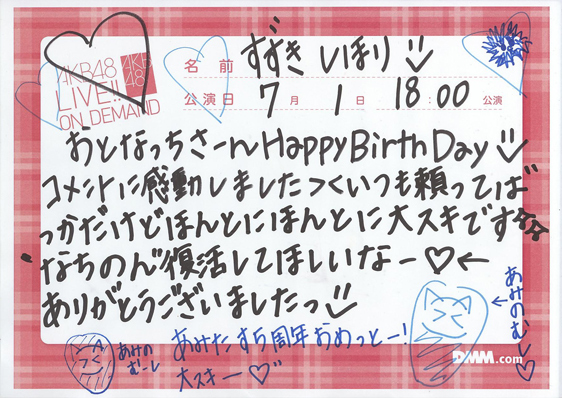 AKB48
LIVE!!
ON DEMAND
AKB
48
名前 すずき しほり
公演日 7月 1日 18:00 公演
おとなっちさーんHappy BirthDay
コメントに感動しましたっくいつも頼ってば
っかだけどほんとにほんとに大スキです
なちのん復活してほしいなー♡←
ありがとうございましたっ
あみのむし♡
↑
あみの
むーし
あみたす5周年おめっとー!
大スキー♡
DMM.com